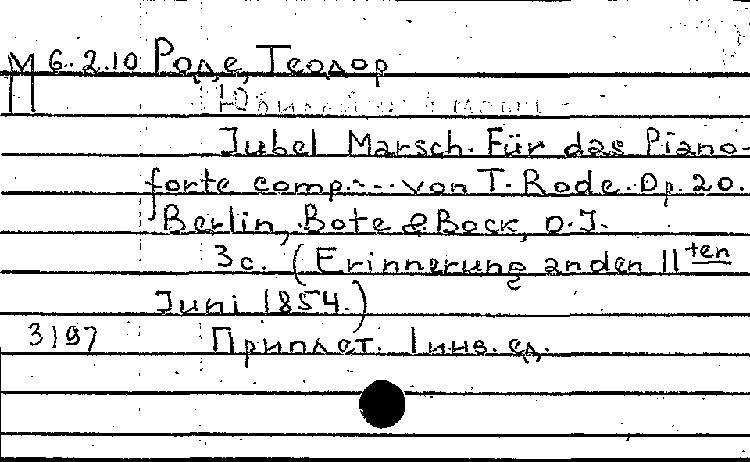 М 6.2.10 Роде, Теодор
Jubel Marsch. Für das Piano-
forte comp.... von T. Rode. Op. 20.
Berlin, Bote & Bock, o.J.
3c. (Erinnerung an den 11ten
Juni 1854.)
3197 Приплет. 1 инв. ед.